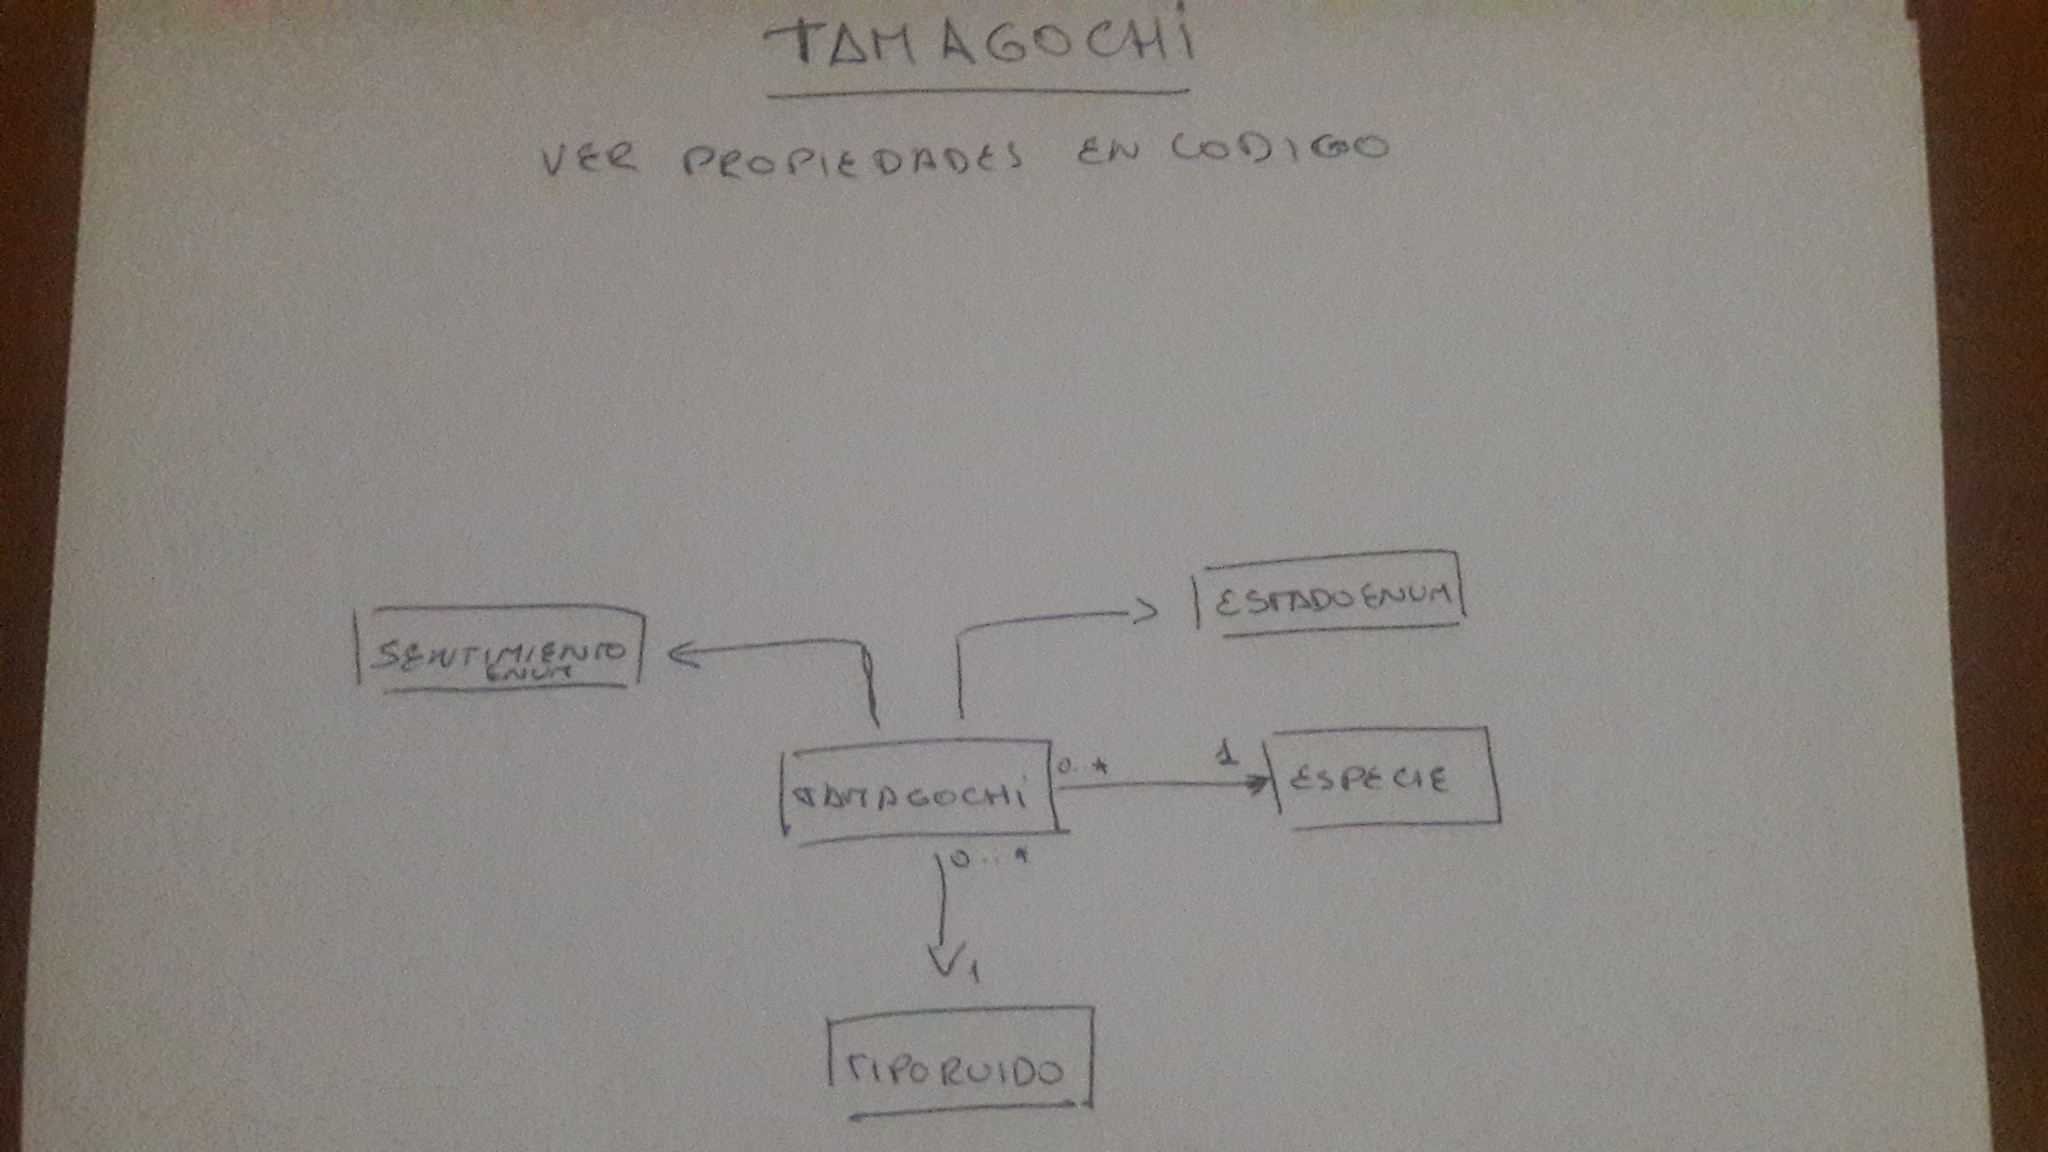 TAMAGOCHI
VER PROPIEDADES EN CODIGO
SENTIMIENTO
ENUM
ESTADOENUM
TAMAGOCHI
0..*
1
ESPECIE
0...*
1
TIPORUIDO